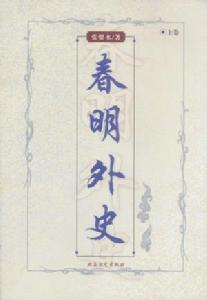 张恨水/著
上卷
春明外史